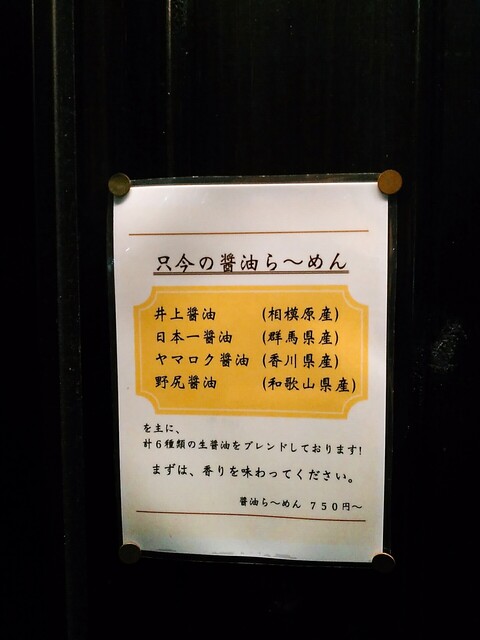 只今の醤油ら〜めん
井上醤油 (相模原産)
日本一醤油 (群馬県産)
ヤマロク醤油 (香川県産)
野尻醤油 (和歌山県産)
を主に、
計6種類の生醤油をブレンドしております!
まずは、香りを味わってください。
醤油ら〜めん 750円〜